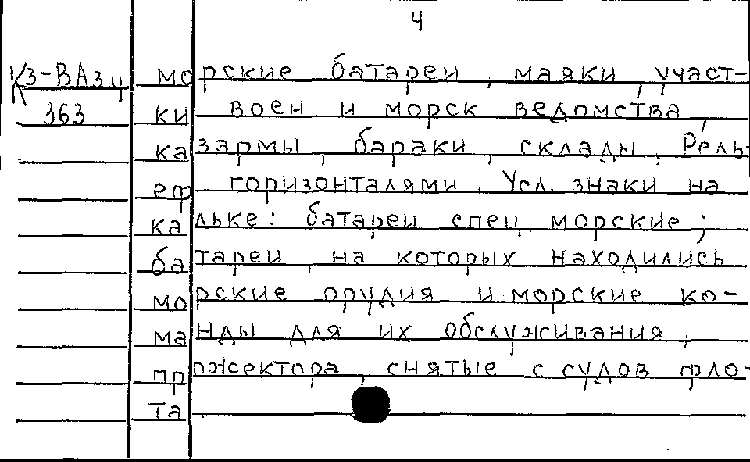 4
К3-ВАзи морские батареи, маяки, участ-
363 ки воен и морск ведомства,
казармы, бараки, склады. Рель-
еф горизонталями. Усл. знаки на
кальке: батареи спец морские;
батареи, на которых находились
морские орудия и морские ко-
манды для их обслуживания,
прожектора, снятые с судов фло-
та